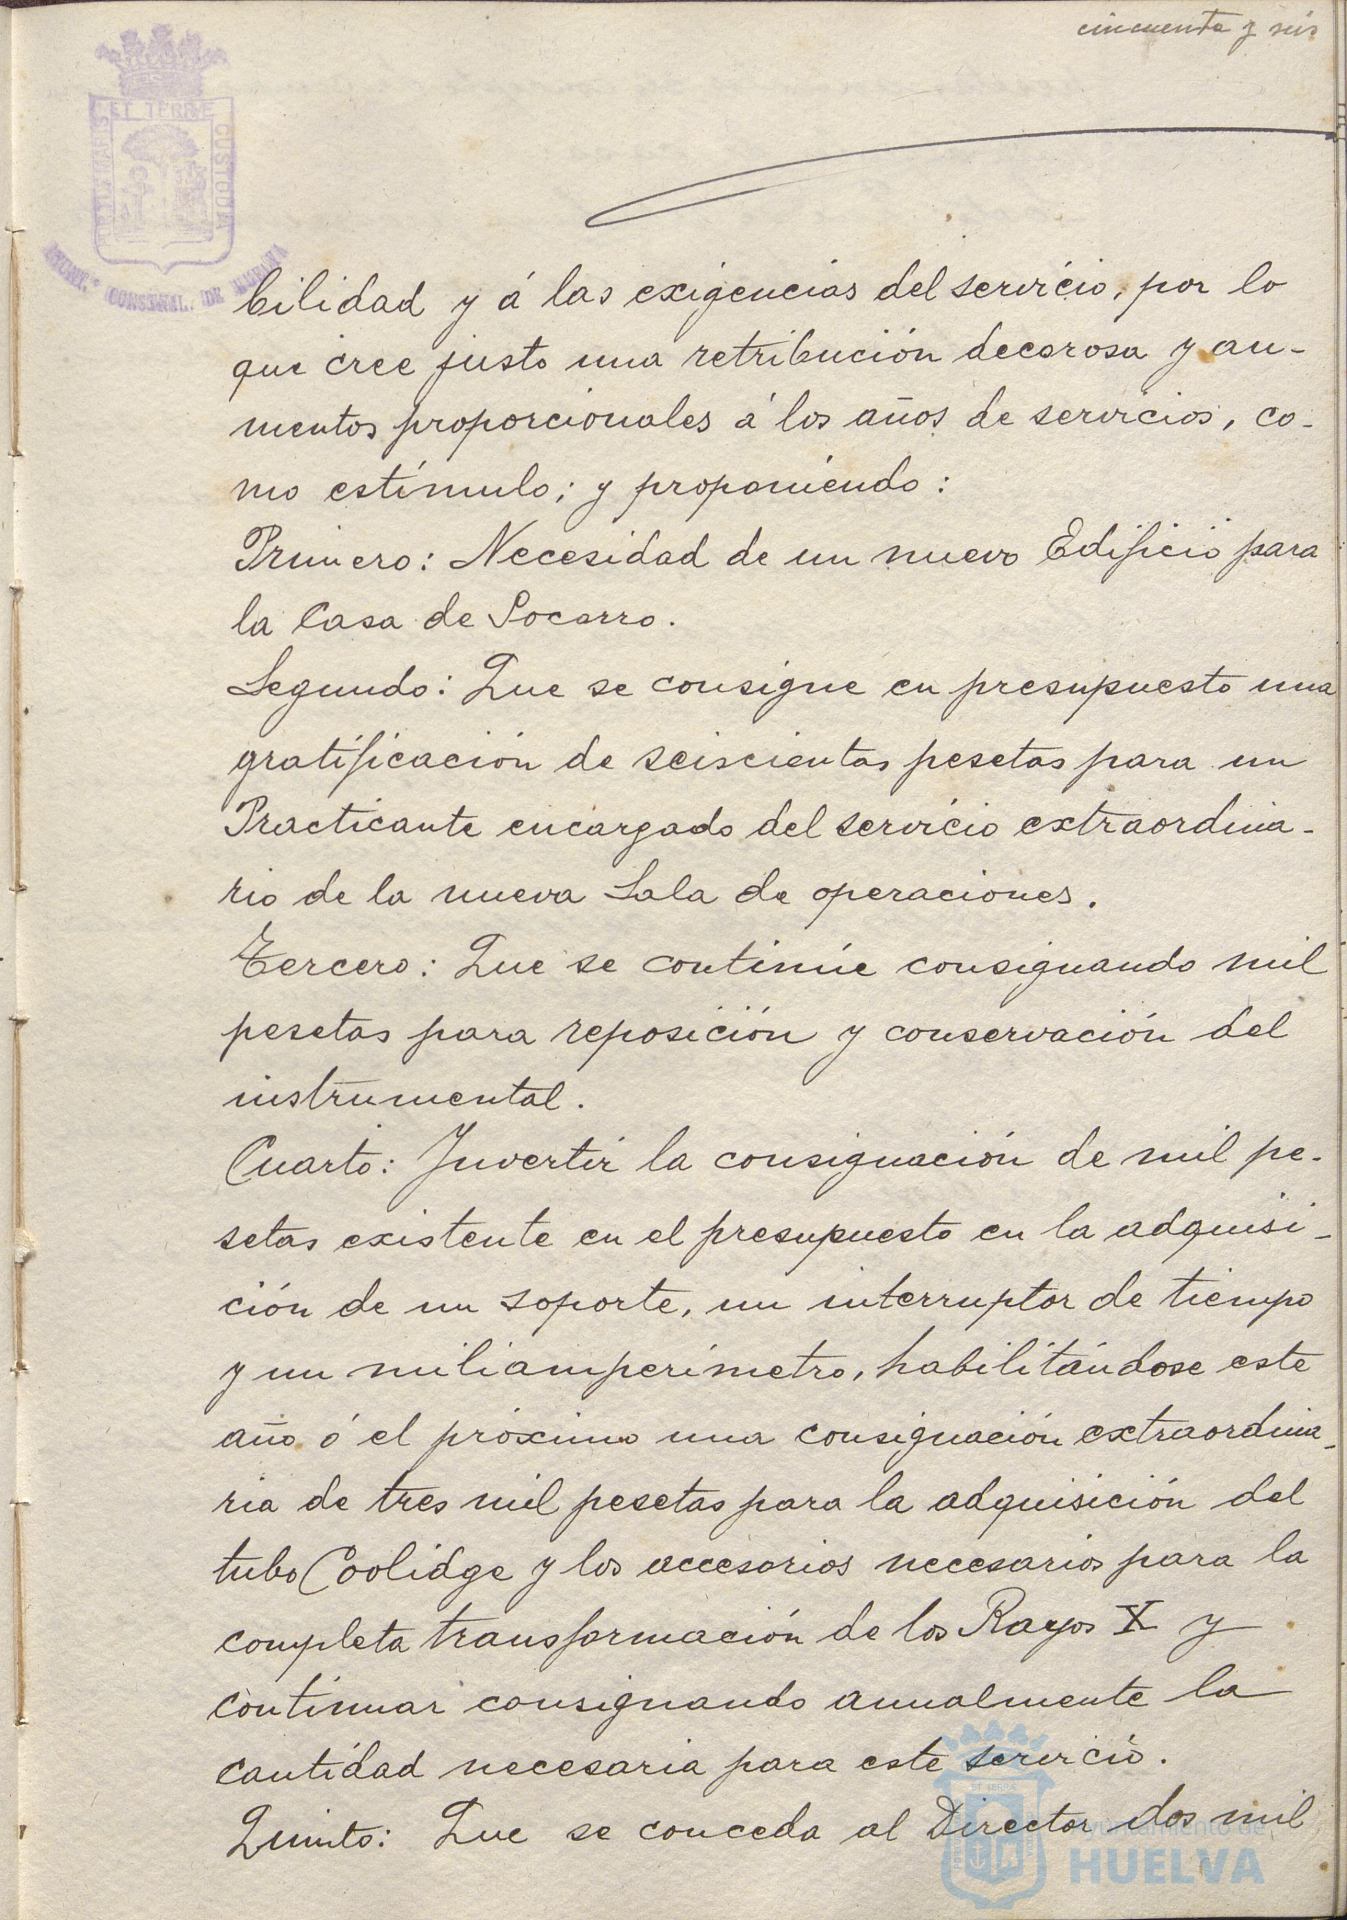 cincuenta y seis
ET TERRÆ
CUSTODIA
AYUNT.º CONSTNAL. DE HUELVA
bilidad y á las exigencias del servicio, por lo
que cree justo una retribución decorosa y au-
mentos proporcionales á los años de servicios, co-
mo estímulo; y proponiendo:
Primero: Necesidad de un nuevo Edificio para
la Casa de Socorro.
Segundo: Que se consigne en presupuesto una
gratificación de seiscientas pesetas para un
Practicante encargado del servicio extraordina-
rio de la nueva Sala de operaciones.
Tercero: Que se continúe consignando mil
pesetas para reposición y conservación del
instrumental.
Cuarto: Invertir la consignación de mil pe-
setas existente en el presupuesto en la adquisi-
ción de un soporte, un interruptor de tiempo
y un miliamperímetro, habilitándose este
año ó el próximo una consignación extraordina-
ria de tres mil pesetas para la adquisición del
tubo Coolidge y los accesorios necesarios para la
completa transformación de los Rayos X y
continuar consignando anualmente la
cantidad necesaria para este servicio.
Quinto: Que se conceda al Director dos mil
Ayuntamiento de
HUELVA